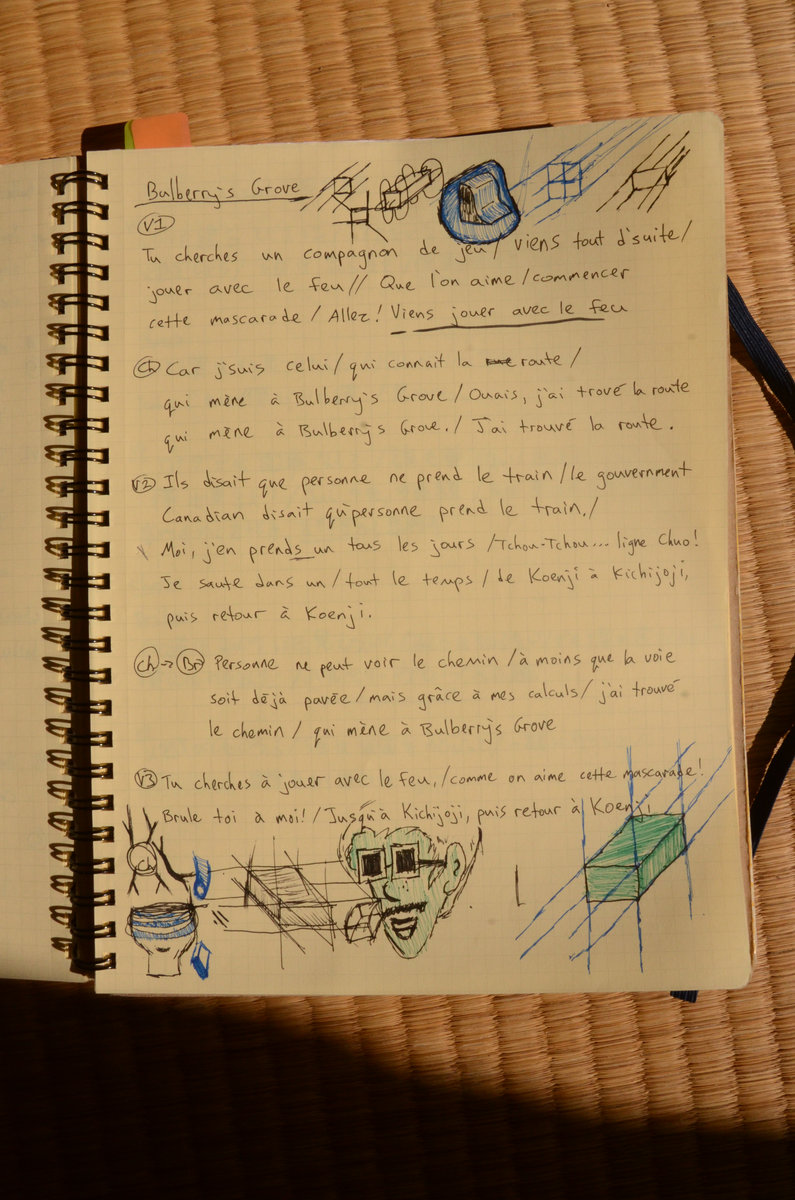 Bulberry's Grove
V1
Tu cherches un compagnon de jeu / viens tout d'suite /
jouer avec le feu // Que l'on aime / commencer
cette mascarade / Allez! Viens jouer avec le feu
Ch Car j'suis celui / qui connait la route /
qui mène à Bulberry's Grove / Ouais, j'ai trové la route
qui mène à Bulberry's Grove. / J'ai trouvé la route.
V2 Ils disait que personne ne prend le train / le gouvernment
Canadian disait qu'personne prend le train. /
Moi, j'en prends un tous les jours / Tchou-Tchou... ligne Chuo!
Je saute dans un / tout le temps / de Koenji à Kichijoji,
puis retour à Koenji.
Ch → Br Personne ne peut voir le chemin / à moins que la voie
soit déjà pavée / mais grâce à mes calculs / j'ai trouvé
le chemin / qui mène à Bulberry's Grove
V3 Tu cherches à jouer avec le feu, / comme on aime cette mascarade!
Brule toi à moi! / Jusqu'à Kichijoji, puis retour à Koenji